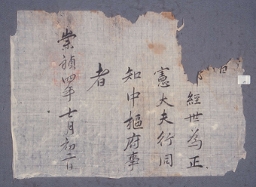 經世為正
憲大夫行同
知中樞府事
者
崇禎四年七月初二日